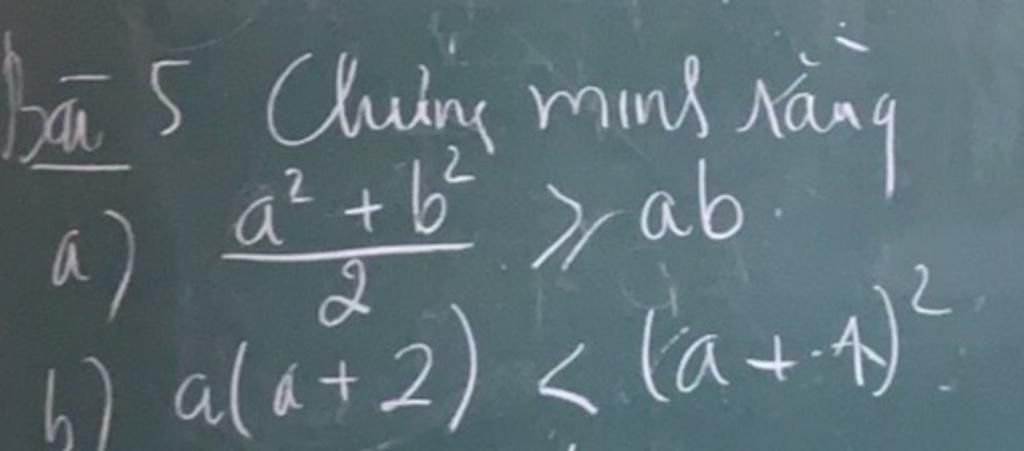 bài 5 Chứng minh rằng
a) \frac{a² + b²}{2} ⩾ ab.
b) a(a + 2) < (a + 1)².